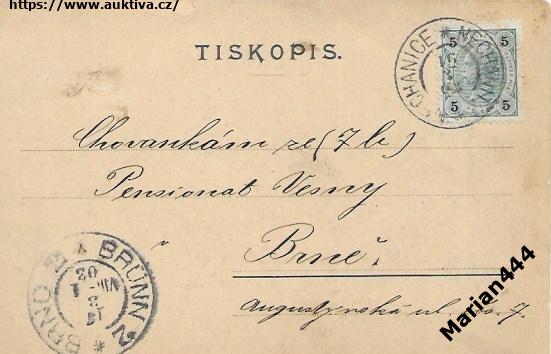 https://www.auktiva.cz/
TISKOPIS.
NECHANICE * NECHANITZ
5 5
5 5
Chovankám ze (7 b)
Pensionat Vesny
v Brně.
Augustýnská ul. čs. 7.
BRÜNN 2 * BRNO 2
Marian444